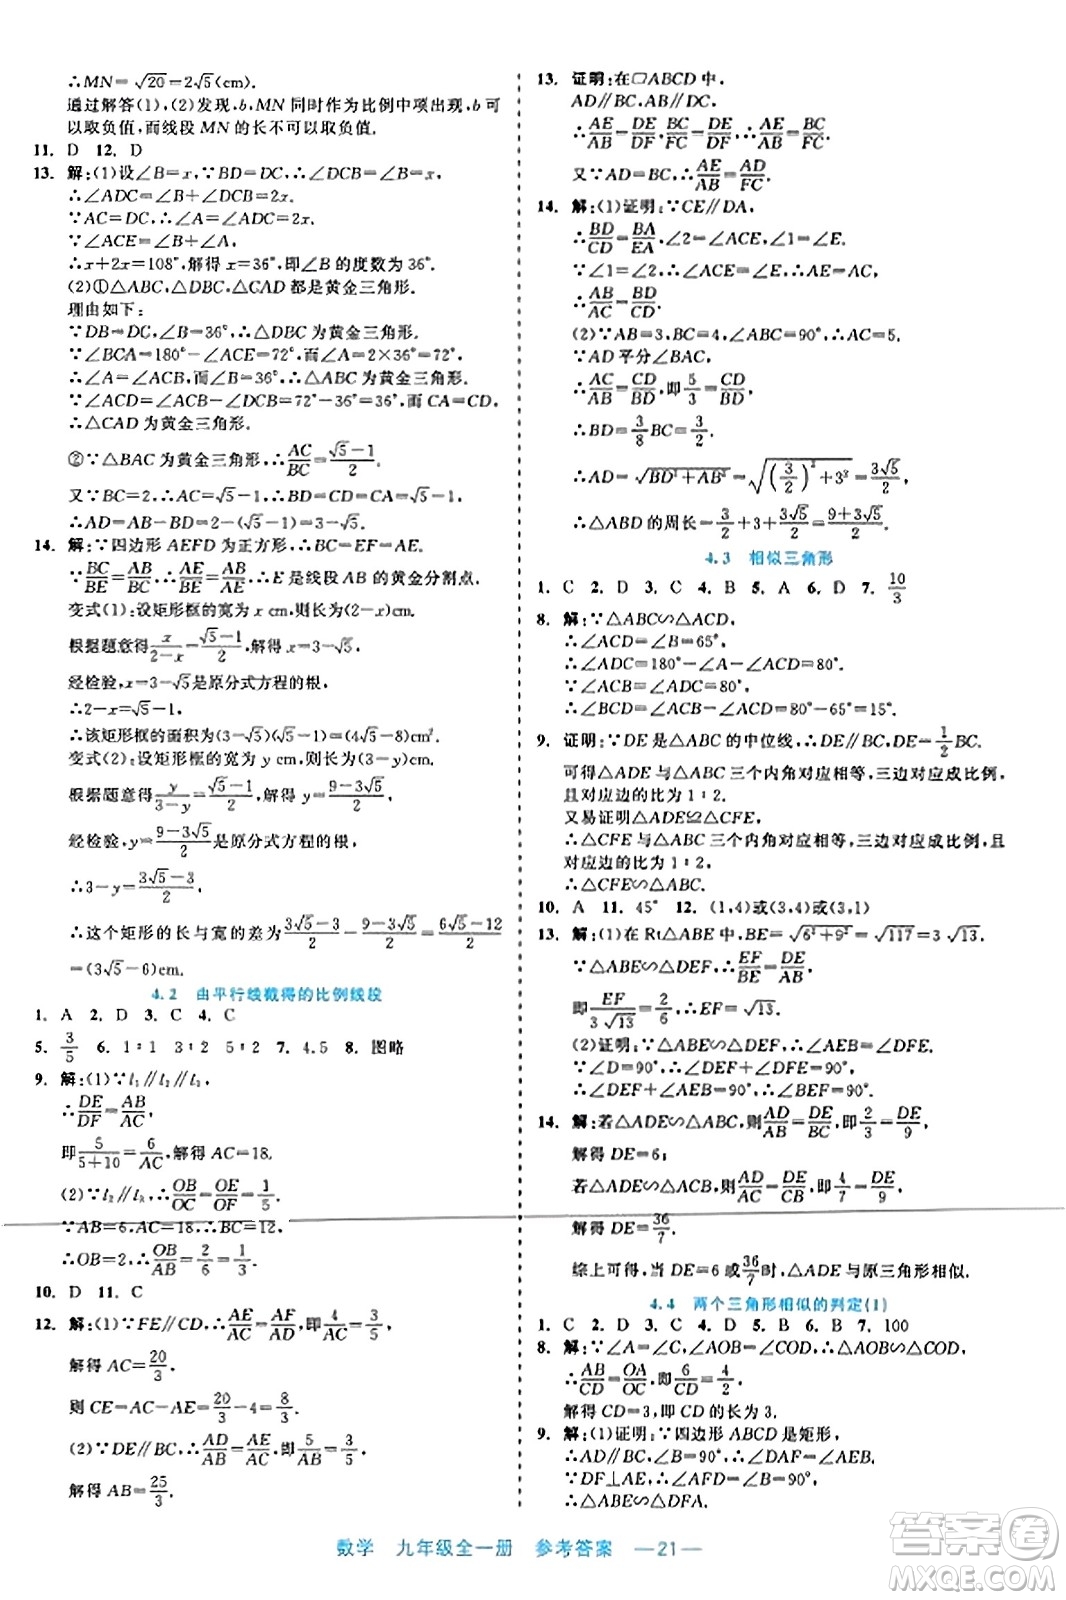 ∴MN=√20=2√5(cm).
通过解答(1),(2)发现,b,MN同时作为比例中项出现,b可
以取负值,而线段MN的长不可以取负值.
11. D 12. D
13. 解:(1)设∠B=x,∵BD=DC,∴∠DCB=∠B=x,
∴∠ADC=∠B+∠DCB=2x.
∵AC=DC,∴∠A=∠ADC=2x.
∵∠ACE=∠B+∠A,
∴x+2x=108°,解得x=36°,即∠B的度数为36°.
(2)①△ABC,△DBC,△CAD都是黄金三角形.
理由如下:
∵DB=DC,∠B=36°,∴△DBC为黄金三角形.
∵∠BCA=180°-∠ACE=72°,而∠A=2×36°=72°,
∴∠A=∠BCA.而∠B=36°,∴△ABC为黄金三角形.
∵∠ACD=∠ACB-∠DCB=72°-36°=36°,而CA=CD,
∴△CAD为黄金三角形.
②∵△BAC为黄金三角形,∴AC/BC=(√5-1)/2.
又∵BC=2,∴AC=√5-1,∴BD=CD=CA=√5-1,
∴AD=AB-BD=2-(√5-1)=3-√5.
14. 解:∵四边形AEFD为正方形,∴BC=EF=AE.
∵BC/BE=AB/BC,∴AE/BE=AB/AE.∴E是线段AB的黄金分割点.
变式(1):设矩形框的宽为x cm,则长为(2-x)cm.
根据题意得x/(2-x)=(√5-1)/2,解得x=3-√5.
经检验,x=3-√5是原分式方程的根,
∴2-x=√5-1,
∴该矩形框的面积为(3-√5)(√5-1)=(4√5-8)cm².
变式(2):设矩形框的宽为y cm,则长为(3-y)cm.
根据题意得y/(3-y)=(√5-1)/2,解得y=(9-3√5)/2.
经检验,y=(9-3√5)/2是原分式方程的根,
∴3-y=(3√5-3)/2,
∴这个矩形的长与宽的差为(3√5-3)/2-(9-3√5)/2=(6√5-12)/2
=(3√5-6)cm.
4.2 由平行线截得的比例线段
1. A 2. D 3. C 4. C
5. 3/5 6. 1∶1 3∶2 5∶2 7. 4.5 8. 图略
9. 解:(1)∵l₁∥l₂∥l₃,
∴DE/DF=AB/AC,
即5/(5+10)=6/AC,∴AC=18.
(2)∵l₂∥l₃,∴OB/OC=OE/OF=1/5.
∵AB=6,AC=18,∴BC=12,
∴OB=2,∴OB/AB=2/6=1/3.
10. D 11. C
12. 解:(1)∵FE∥CD,∴AE/AC=AF/AD,即4/AC=3/5,
解得AC=20/3.
则CE=AC-AE=20/3-4=8/3.
(2)∵DE∥BC,∴AD/AB=AE/AC,即5/AB=3/5,
解得AB=25/3.
13. 证明:在▱ABCD中,
AD∥BC,AB∥DC,
∴AE/AB=DE/DF,FC/BC=DF/DE.
∴AE/AB=BC/FC.
又∵BC=AD,∴AE/AB=AD/FC.
14. 解:(1)证明:∵CE∥DA,
∴BD/CD=BA/EA,∠2=∠ACE,∠1=∠E.
∵∠1=∠2,∴∠ACE=∠E.∴AE=AC,
∴AB/AC=BD/CD.
(2)∵AB=3,BC=4,∠ABC=90°,∴AC=5.
∵AD平分∠BAC,
∴AC/AB=CD/BD,即5/3=CD/BD.
∴BD=3/8 BC=3/2.
∴AD=√(BD²+AB²)=√((3/2)²+3²)=3√5/2,
∴△ABD的周长=3/2+3+3√5/2=(9+3√5)/2.
4.3 相似三角形
1. C 2. D 3. D 4. B 5. A 6. D 7. 10/3
8. 解:∵△ABC∽△ACD,
∴∠ACD=∠B=65°,
∴∠ADC=∠ACB=80°.
∵∠BCA=∠ADC=80°,
∴∠BCD=∠BCA-∠ACD=80°-65°=15°.
9. 证明:∵DE是△ABC的中位线,∴DE=1/2 BC.
可得△ADE与△ABC三个内角对应相等,三边对应成比例,
且对应边的比为1∶2.
又易证明△ADE≌△CFE,
∴△CFE与△ABC三个内角对应相等,三边对应成比例,且
对应边的比为1∶2,
∴△CFE∽△ABC.
10. A 11. 45° 12. (1,4)或(3,4)或(3,1)
13. 解:(1)在Rt△ABE中,BE=√(6²+9²)=√117=3√13.
∵△ABE∽△DEF,∴EF/BE=DE/AB,
即EF/(3√13)=2/6,∴EF=√13.
(2)证明:∵△ABE∽△DEF,∴∠ABE=∠DEF.
∵∠D=90°,∴∠DEF+∠DFE=90°,
∴∠DEF+∠AEB=90°,∴∠BEF=90°.
14. 解:若△ADE∽△ABC,则AD/AB=DE/BC,即2/3=DE/9,
解得DE=6;
若△ADE∽△ACB,则AD/AC=DE/CB,即4/7=DE/9,
解得DE=36/7.
综上可得,当DE=6或36/7时,△ADE与原三角形相似.
4.4 两个三角形相似的判定(1)
1. C 2. D 3. C 4. D 5. B 6. B 7. 100
8. 解:∵∠A=∠C,∠AOB=∠COD,∴△AOB∽△COD,
∴AB/CD=OA/OC,∴6/CD=4/2,
解得CD=3,即CD的长为3.
9. 解:(1)证明:∵四边形ABCD是矩形,
∴AD∥BC,∠B=90°,∴∠DAF=∠AEB.
∵DF⊥AE,∴∠AFD=∠B=90°,
∴△ABE∽△DFA.
数学 九年级全一册 参考答案 —21—
答案圈
MXQE.COM